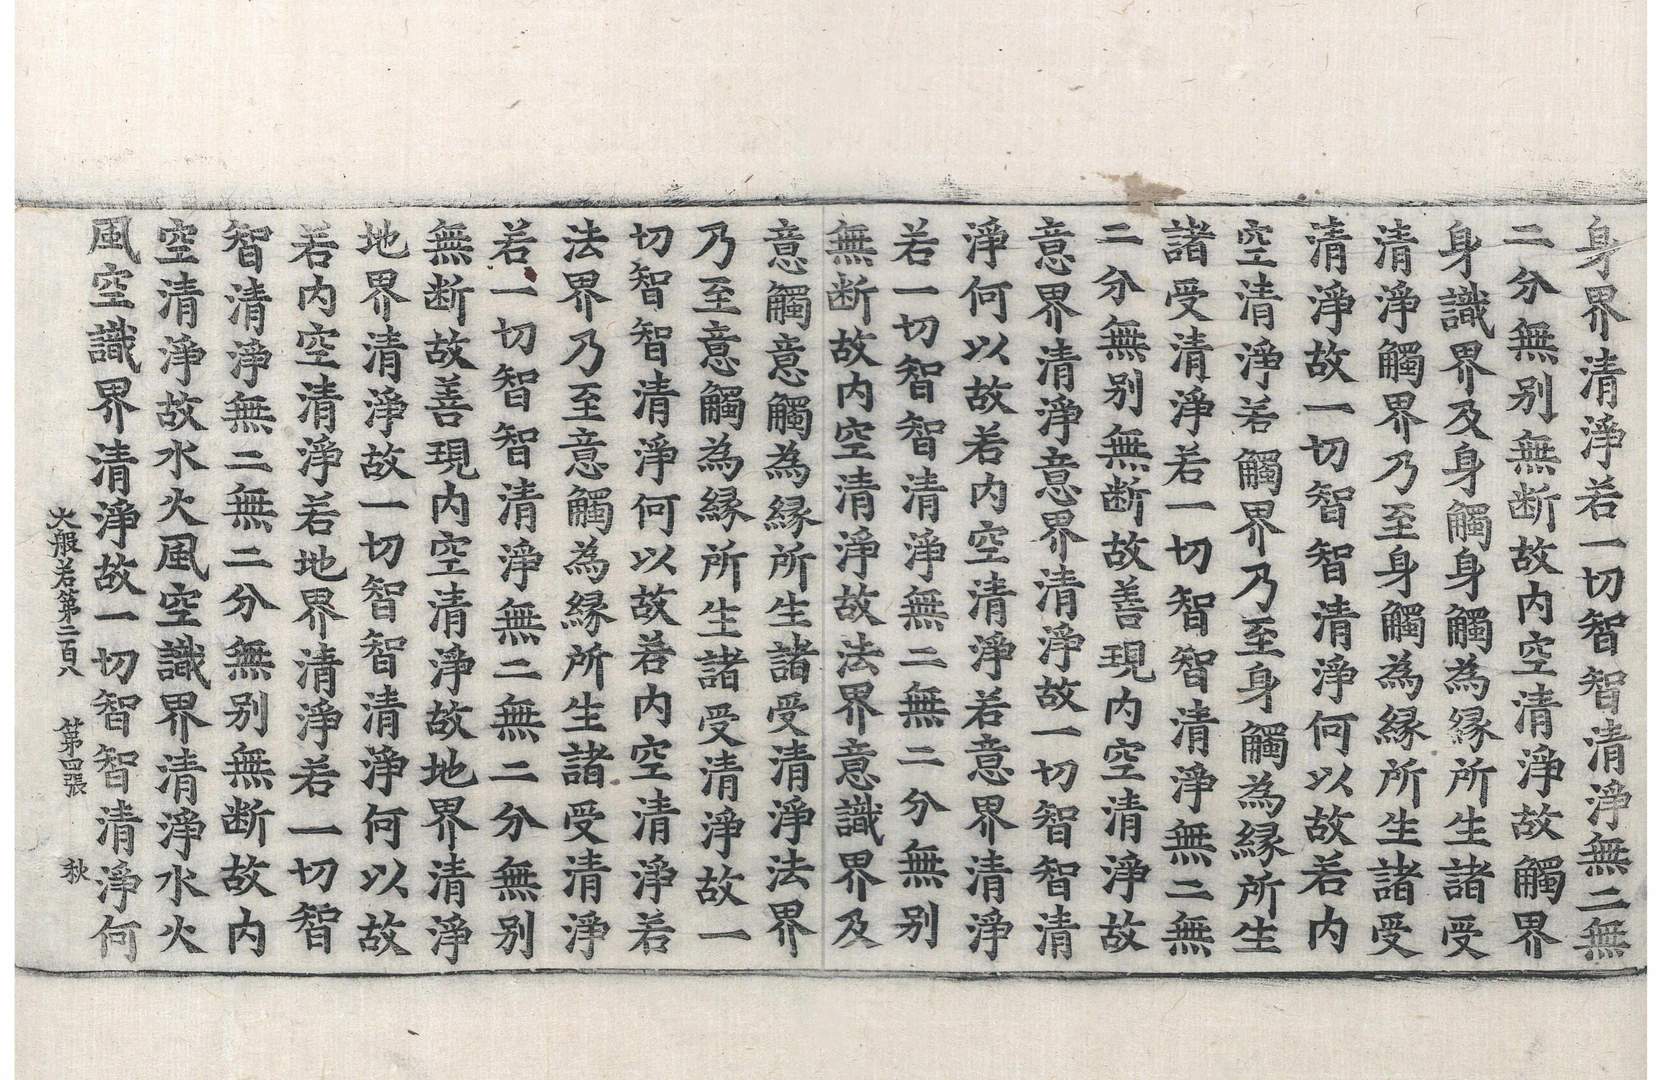 身界清淨若一切智智清淨無二無
二分無別無断故内空清淨故觸界
身識界及身觸身觸為緣所生諸受
清淨觸界乃至身觸為緣所生諸受
清淨故一切智智清淨何以故若内
空清淨若觸界乃至身觸為緣所生
諸受清淨若一切智智清淨無二無
二分無別無断故善現内空清淨故
意界清淨意界清淨故一切智智清
淨何以故若内空清淨若意界清淨
若一切智智清淨無二無二分無別
無断故内空清淨故法界意識界及
意觸意觸為緣所生諸受清淨法界
乃至意觸為緣所生諸受清淨故一
切智智清淨何以故若内空清淨若
法界乃至意觸為緣所生諸受清淨
若一切智智清淨無二無二分無別
無断故善現内空清淨故地界清淨
地界清淨故一切智智清淨何以故
若内空清淨若地界清淨若一切智
智清淨無二無二分無別無断故内
空清淨故水火風空識界清淨水火
風空識界清淨故一切智智清淨何
大般若第二百八 第四張 秋